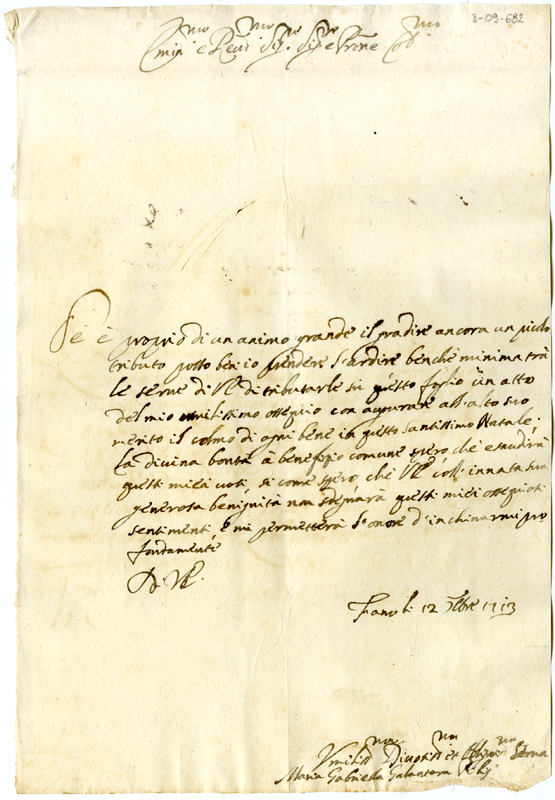 3-09-682
Emin^mo e Reu^mo Sig.^re Sig^re e Prone Col^mo
Se è proprio di un animo grande il gradire ancora un picolo
tributo posso ben io prendere l'ardire benche minima trà
le serue di VE di tributarle sù questo foglio un atto
del mio umilissimo ossequio con augurare all'alto suo
merito il colmo di ogni bene in questo santissimo Natale.
La diuina bontà à beneficio comune spero che esaudirà
questi miei uoti, si come spero, che VE coll'innata sua
generosa benignità non sdegnarà questi miei ossequiosi
sentimenti è mi permetterà l'onore d'inchinarmi pro
fondamente
D. VE.
Fano li 12 Xbre 1713
Vmiliss^ma Diuotiss^ma et Obligat^ma Serua
Maria Gabriella Galantara